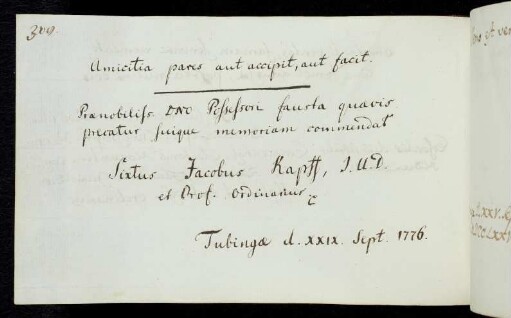 309.
Amicitia pares aut accipit, aut facit.
Praenobiliss. DNO Possessori fausta quaevis
precatur suique memoriam commendat
Sixtus Jacobus Kapff, J.U.D
et Prof. Ordinarius
Tubingae d. XXIX. Sept. 1776.